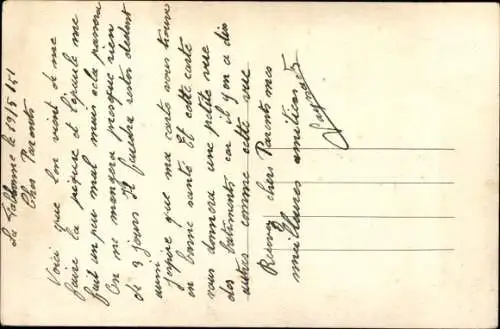 La Valbonne le 19/5
Chers Parents
Voici que l'on vient de me
faire la piqure et l'épaule me
fait un peu mal mais cela passera
On ne mangera presque rien
de 3 jours Il faudra rester dedant
aussi
j'espère que ma carte vous trouve
en bonne santé Et cette carte
vous donnera une petite vue
des batiments car il y en a dix
autres comme cette vue
Recevez chers Parents mes
meilleures amitiés